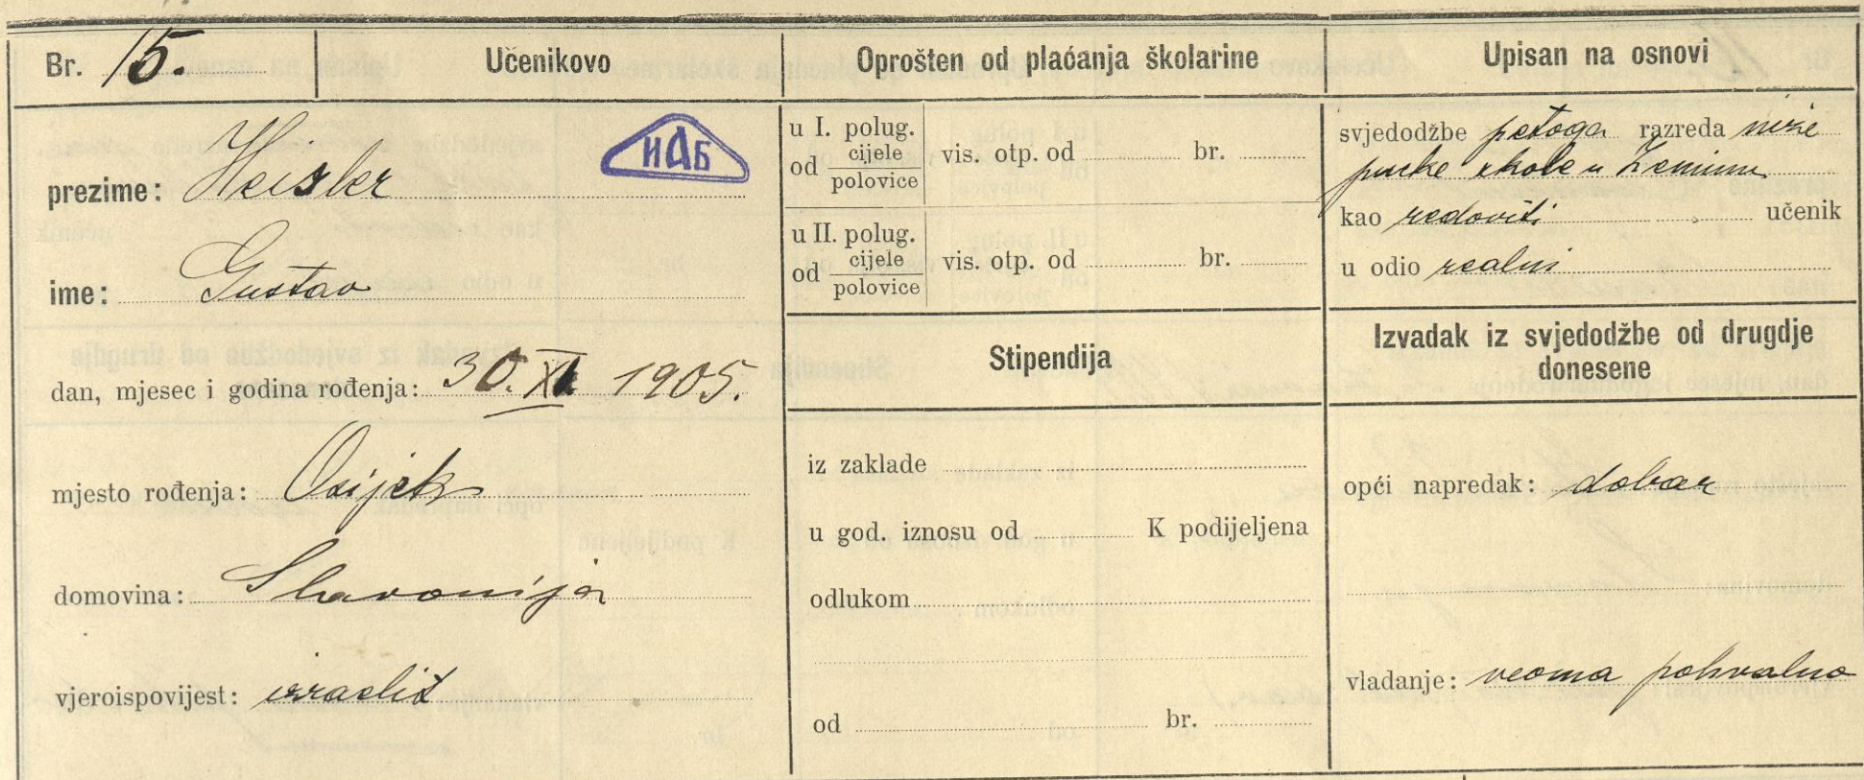 Br. 15.
Učenikovo
Oprošten od plaćanja školarine
Upisan na osnovi
prezime: Heisler
ИАБ
ime: Gustav
dan, mjesec i godina rođenja: 30. XI 1905.
mjesto rođenja: Osijek
domovina: Slavonija
vjeroispovijest: izraelit
u I. polug.
od cijele polovice vis. otp. od br.
u II. polug.
od cijele polovice vis. otp. od br.
Stipendija
iz zaklade
u god. iznosu od K podijeljena
odlukom
od br.
svjedodžbe petoga razreda niže
pučke škole u Zemunu
kao redoviti učenik
u odio realni
Izvadak iz svjedodžbe od drugdje
donesene
opći napredak: dobar
vladanje: veoma pohvalno